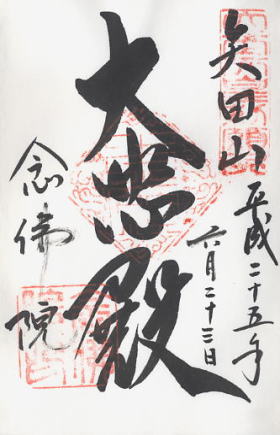 矢田山
平成二十五年
六月二十三日
大悲殿
念佛院